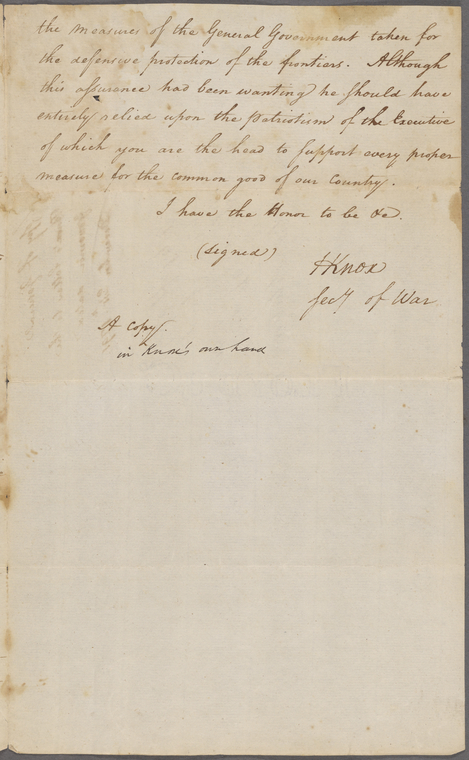 the measures of the General Government taken for
the defensive protection of the frontiers. Although
this assurance had been wanting he should have
entirely relied upon the Patriotism of the Executive
of which you are the head to support every proper
measure for the common good of our Country.
I have the Honor to be &c.
(signed)
HKnox
Secy of War
A copy.
in Knox's own hand